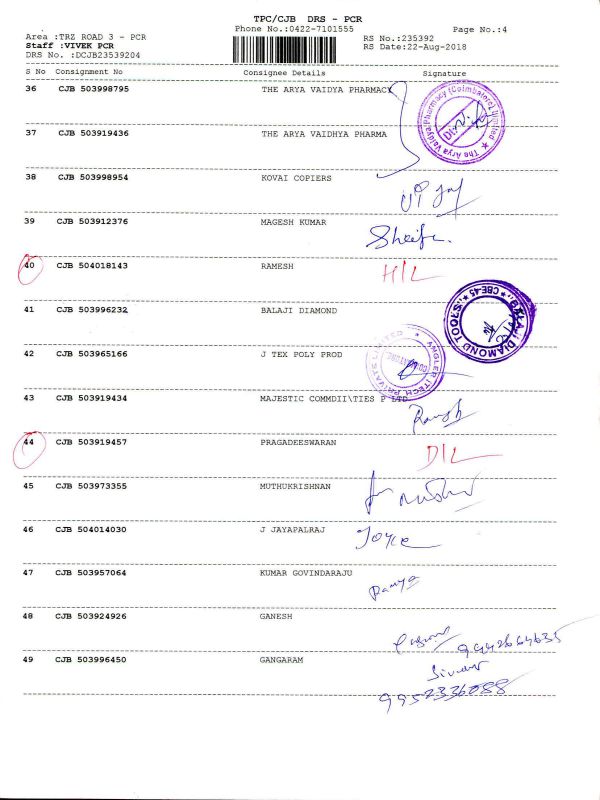 TPC/CJB DRS - PCR
Phone No.:0422-7101555
Page No.:4
Area :TRZ ROAD 3 - PCR
RS No.:235392
Staff :VIVEK PCR
RS Date:22-Aug-2018
DRS No. :DCJB23539204
S No Consignment No Consignee Details Signature
36 CJB 503998795 THE ARYA VAIDYA PHARMACY
37 CJB 503919436 THE ARYA VAIDHYA PHARMA
The Arya Vaidya Pharmacy (Coimbatore) Limited
38 CJB 503998954 KOVAI COPIERS
39 CJB 503912376 MAGESH KUMAR
40 CJB 504018143 RAMESH H/L
41 CJB 503996232 BALAJI DIAMOND
BALAJI DIAMOND TOOLS CBE-45
42 CJB 503965166 J TEX POLY PROD
43 CJB 503919434 MAJESTIC COMMDII\TIES P LTD
44 CJB 503919457 PRAGADEESWARAN D/L
45 CJB 503973355 MUTHUKRISHNAN
46 CJB 504014030 J JAYAPALRAJ Joyce
47 CJB 503957064 KUMAR GOVINDARAJU Ramya
48 CJB 503924926 GANESH
9442664635
49 CJB 503996450 GANGARAM
9952336088